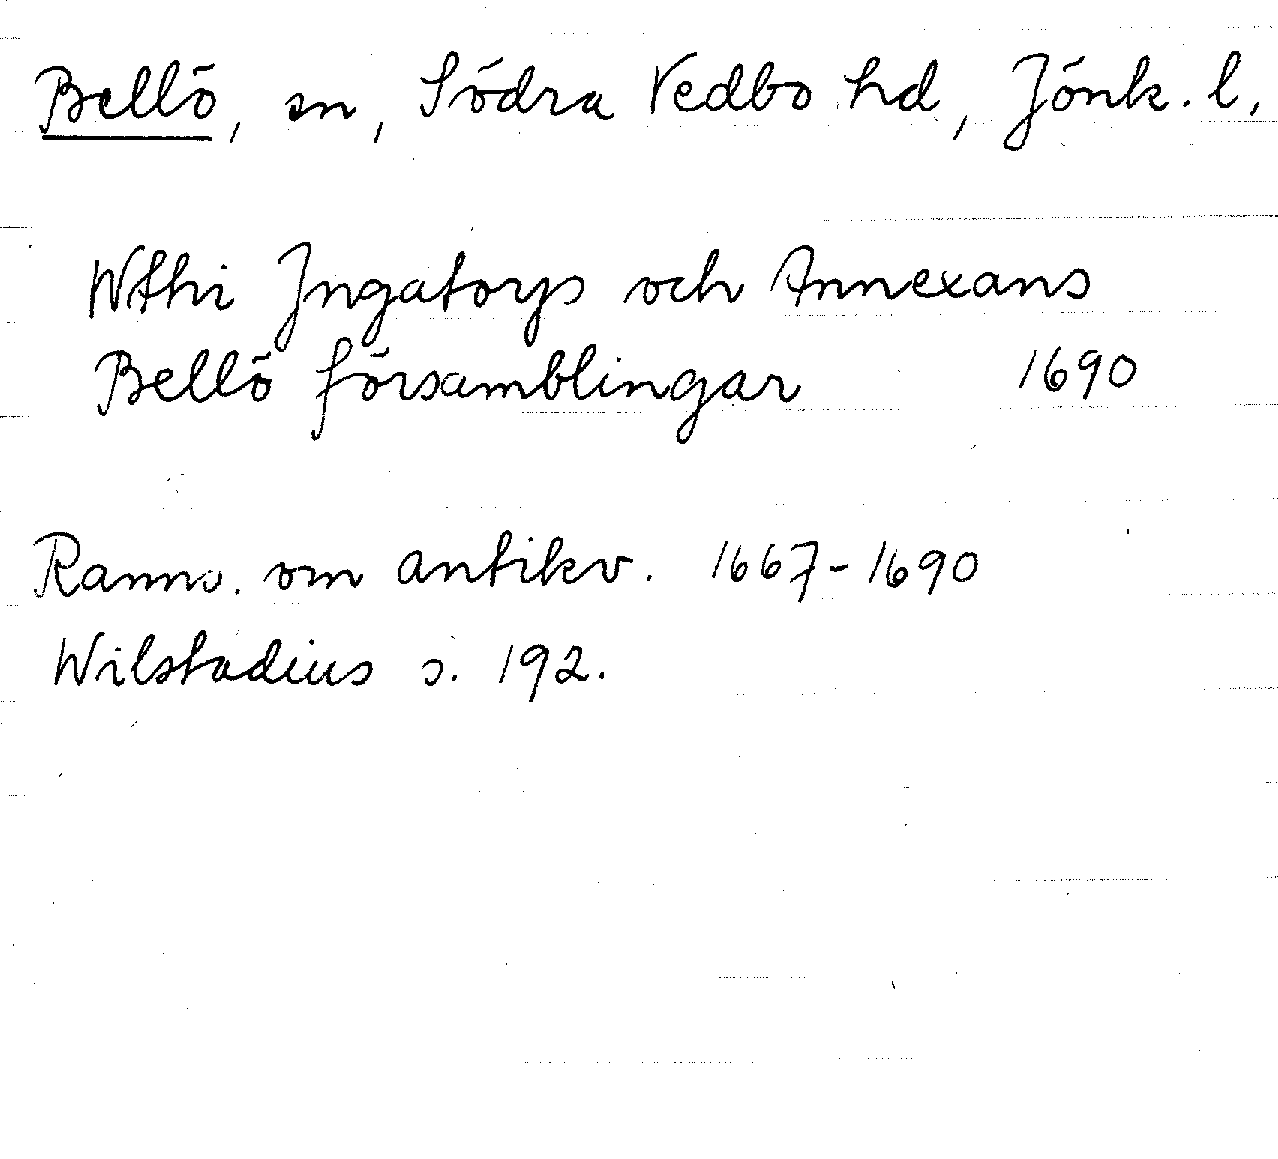 Bellö, sn, Södra Vedbo hd, Jönk. l,
Wthi Jngatorys och Annexans
Bellö församblingar 1690
Ranns. om antikv. 1667-1690
Wilstadius s. 192.